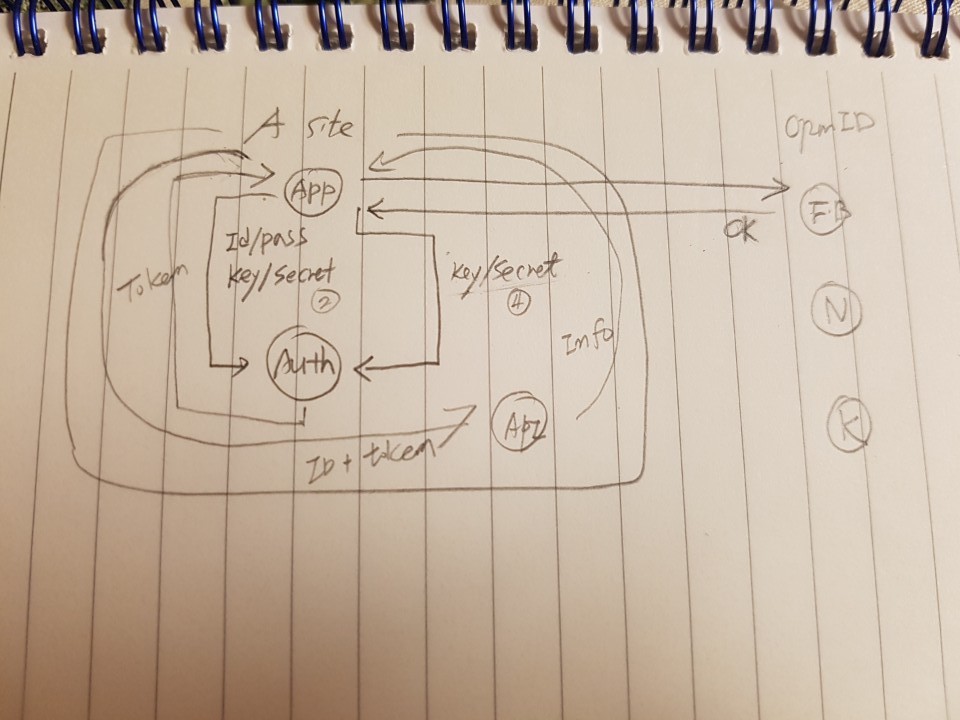 A site
OpenID
App
FB
OK
Id/pass
key/secret
②
Token
key/secret
④
N
Info
Auth
API
K
ID + token